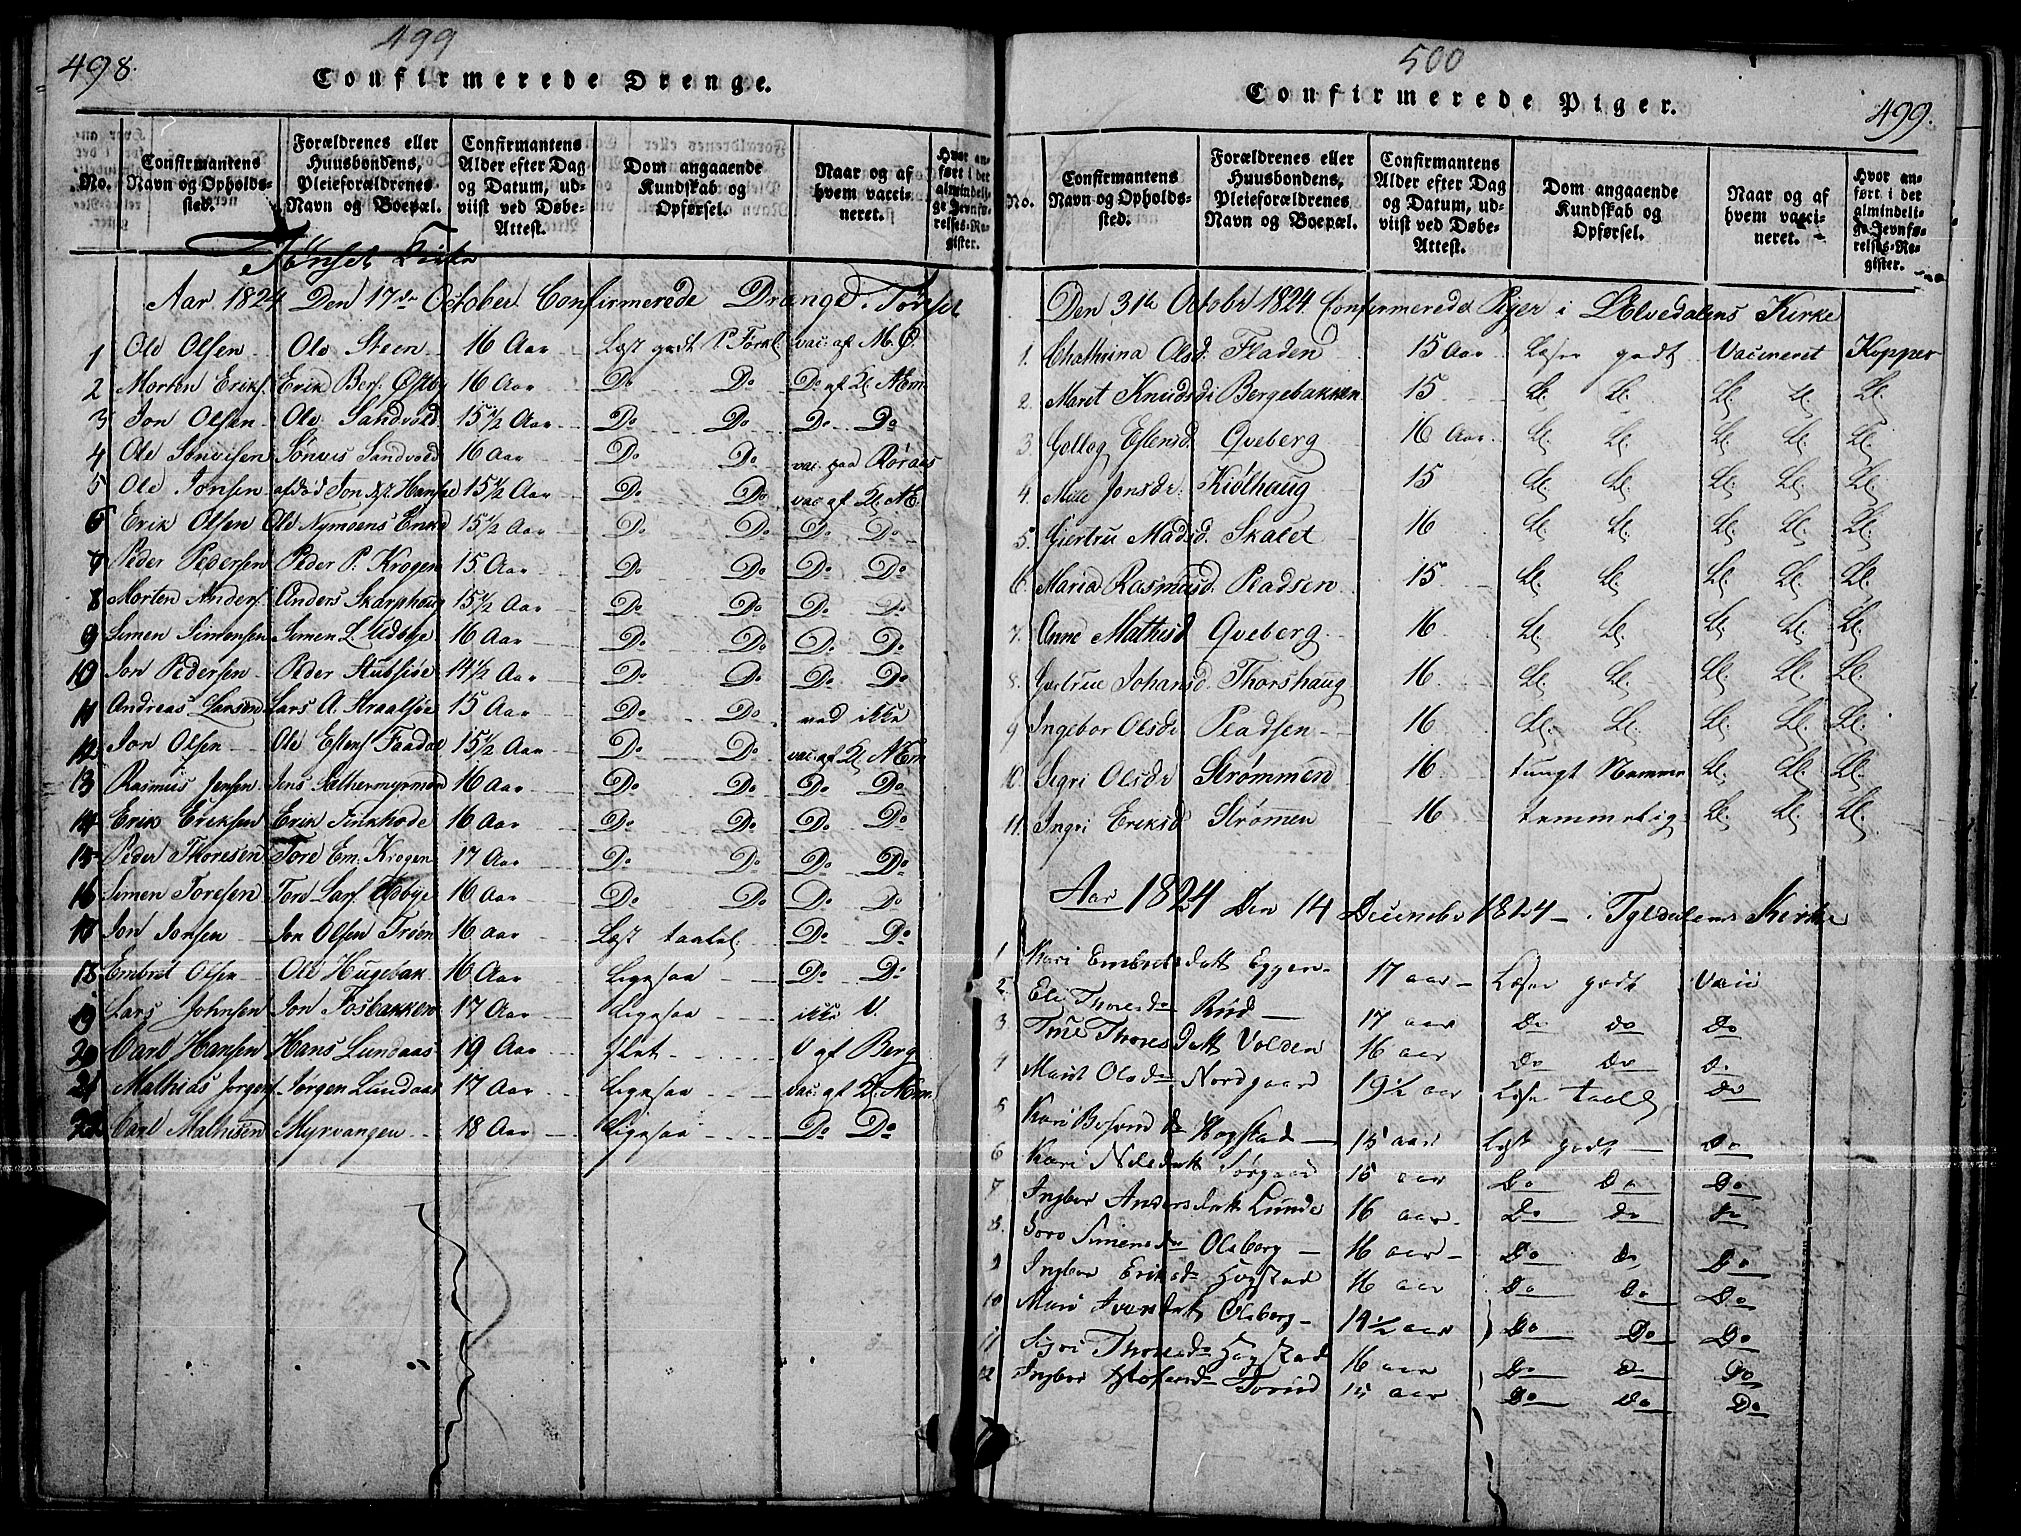 498.
499
Confirmerede Drenge.
No.
Confirmantens Navn og Opholdssted.
Forældrenes eller Huusbondens, Pleieforældrenes Navn og Boepæl.
Confirmantens Alder efter Dag og Datum, udviist ved Døbe-Attest.
Dom angaaende Kundskab og Opførsel.
Naar og af hvem vaccineret.
Hvor anført i det almindelige Jevnførelses-Register.
Tønset Kirke
Aar 1824 Den 17de October Confirmerede Drenge i Tønset
1 Ole Olsen Ole Steen 16 Aar Læst godt vac: af
2 Morten Eriks. Erik Bers. Østby 16 Aar Do Do Do af Kl. Næm
3 Jon Olsen Ole Sandvold 15 1/2 Aar Do Do Do Do
4 Ole Sønvisen Sønvis Sandvold 16 Aar Do Do vac: paa Røraas
5 Ole Jonsen afdød Jon 15 1/2 Aar Do Do vac af Kl. Næ.
6 Erik Olsen Ole Nymoens Enke 15 1/2 Aar Do Do Do Do
7 Peder Pedersen Peder P. Krogen 15 Aar Do Do Do Do
8 Morten Anders. Anders Skarphaug 15 1/2 Aar Do Do Do Do
9 Simen Simensen Simen L. Udbye 16 Aar Do Do Do Do
10 Jon Pedersen Peder Stubsjøe 14 1/2 Aar Do Do Do Do
11 Andreas Larsen Lars A. Straalsjøe 15 Aar Do Do ved ikke
12 Jon Olsen Ole Estens. Faadal 15 1/2 Aar Do Do vac: af Kl. Næm
13 Rasmus Jensen Jens Sæthermyrmoe 16 Aar Do Do Do Do
14 Erik Eriksen Erik 16 Aar Do Do Do Do
15 Peder Thoresen Tore Em: Krogen 17 Aar Do Do Do Do
16 Simen Toresen Tore Lars. Udbye 16 Aar Do Do Do Do
17 Jon Jonsen Jon Olsen Trøen 16 Aar Læst taalel. Do Do
18 Embret Olsen Ole Hugebak 16 Aar Ligesaa Do Do
19 Lars Johnsen Jon Fosbakken 17 Aar Ligesaa ikke V.
20 Carl Hansen Hans Lundaas 19 Aar slet V af Berg
21 Mathias Jørgens. Jørgen Lundaas 17 Aar Ligesaa vac: af Kl. Næm.
22 Carl Mathisen Myrvangen 18 Aar Ligesaa Do Do
500
499.
Confirmerede Piger.
No.
Confirmantens Navn og Opholdssted.
Forældrenes eller Huusbondens, Pleieforældrenes Navn og Boepæl.
Confirmantens Alder efter Dag og Datum, udviist ved Døbe-Attest.
Dom angaaende Kundskab og Opførsel.
Naar og af hvem vaccineret.
Hvor anført i det almindelige Jevnførelses-Register.
Den 31te Octobr 1824 Confirmerede Piger i Lilelvedalens Kirke
1. Chathrina Olsd. Fladen 15 Aar Læser godt Vacineret Kopper
2. Maret Knudsdr Bergebakken 15 Ll. Ll. Ll. Ll. Ll.
3. Gollog Estensd. Qveberg 16 Aar Ll. Ll. Ll. Ll. Ll.
4. Mille Jonsdr. Kiølhaug 15 Ll. Ll. Ll. Ll. Ll.
5. Giertru Madsd. Skalet 16 Ll. Ll. Ll. Ll. Ll.
6. Maria Rasmusd. Pladsen 15 Ll. Ll. Ll. Ll. Ll.
7. Anne Mathisd Qveberg 16 Ll. Ll. Ll. Ll. Ll.
8. Giertrue Johansd. Thorshaug 16 Ll. Ll. Ll. Ll. Ll.
9 Ingebor Olsdr Pladsen 16 Ll. Ll. Ll. Ll. Ll.
10. Sigri Olsdr Strømmen 16 tungt Nemme Ll. Ll. Ll.
11. Ingri Eriksd Strømen 16 temmelig Ll. Ll. Ll.
Aar 1824 Den 14 Decembr 1824 i Tyldalens Kirke
1 Kari Embretsdatt Eggen 17 aar Læser godt Vacc
2. Eli Thoresdr Rud 17 aar Do do Do
3 Thoresdatt Volden 16 aar Do Do Do
4 Marit Olsdr Nordgaard 19 1/2 aar Læse taalel Do
5 Kari Hogstad 15 aar Læse godt Do
6 Kari Nilsdatt Sørgaard 15 aar Do Do Do
7 Ingbor Andersdatt Lunde 16 aar Do do Do
8. Goro Simensdr Olsberg 16 aar Do Do Do
9 Ingbor Eriksdr Hogstad 16 aar Do Do Do
10 Mari Iversdatt Olsberg 14 1/2 aar Do Do Do
11 Sigri Thoresdr Hogstad 16 aar Do Do Do
12 Ingbor 15 aar Do Do Do